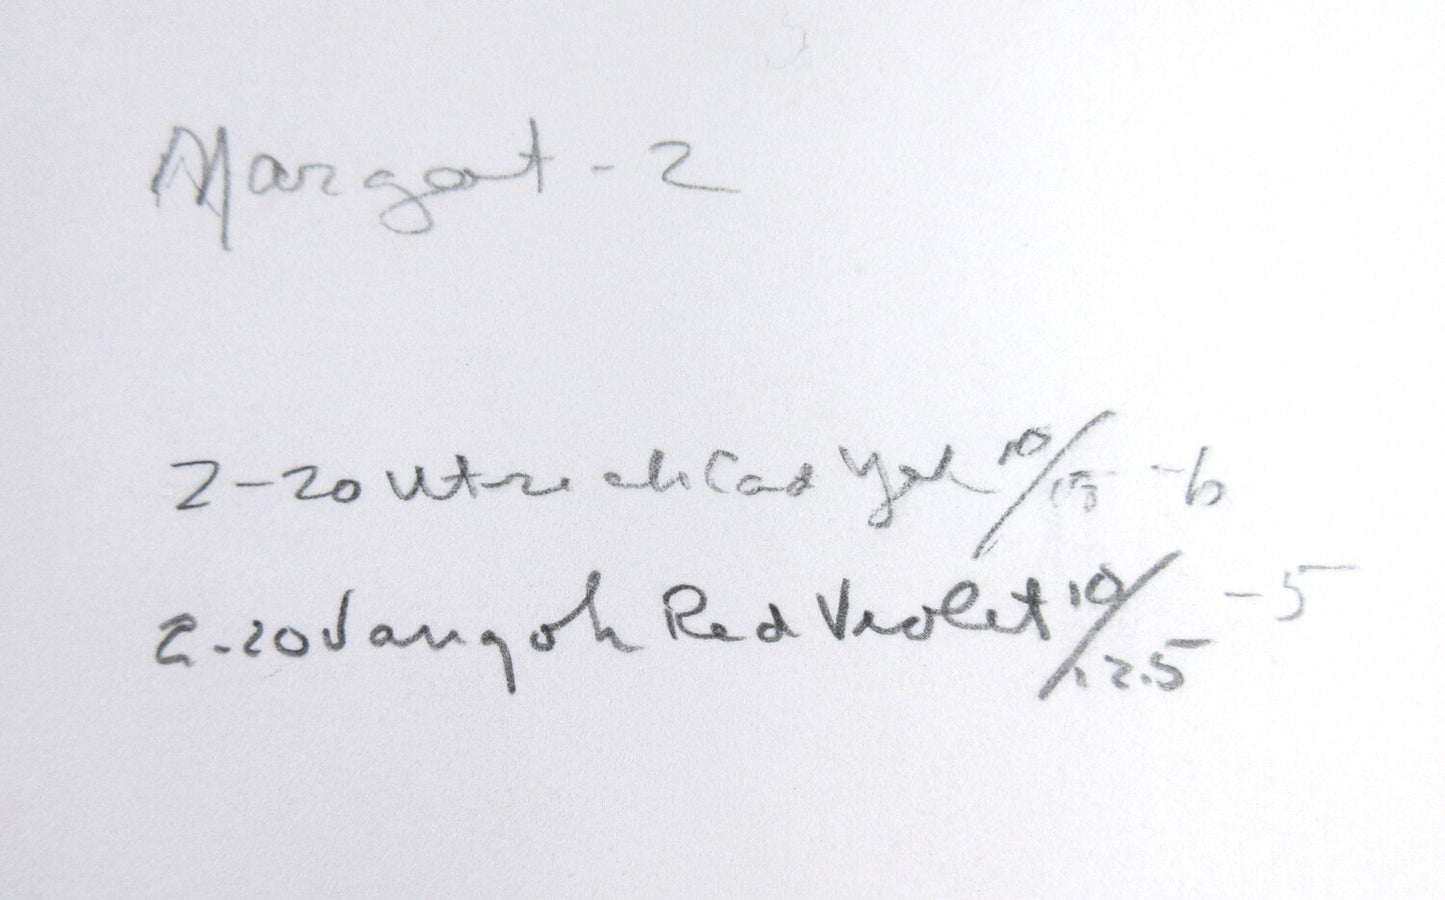 Margaret - 2
2-20 Utrecht Cad Yel 10/15 -6
2-20 Vangoh Red Violet 10/22.5 -5